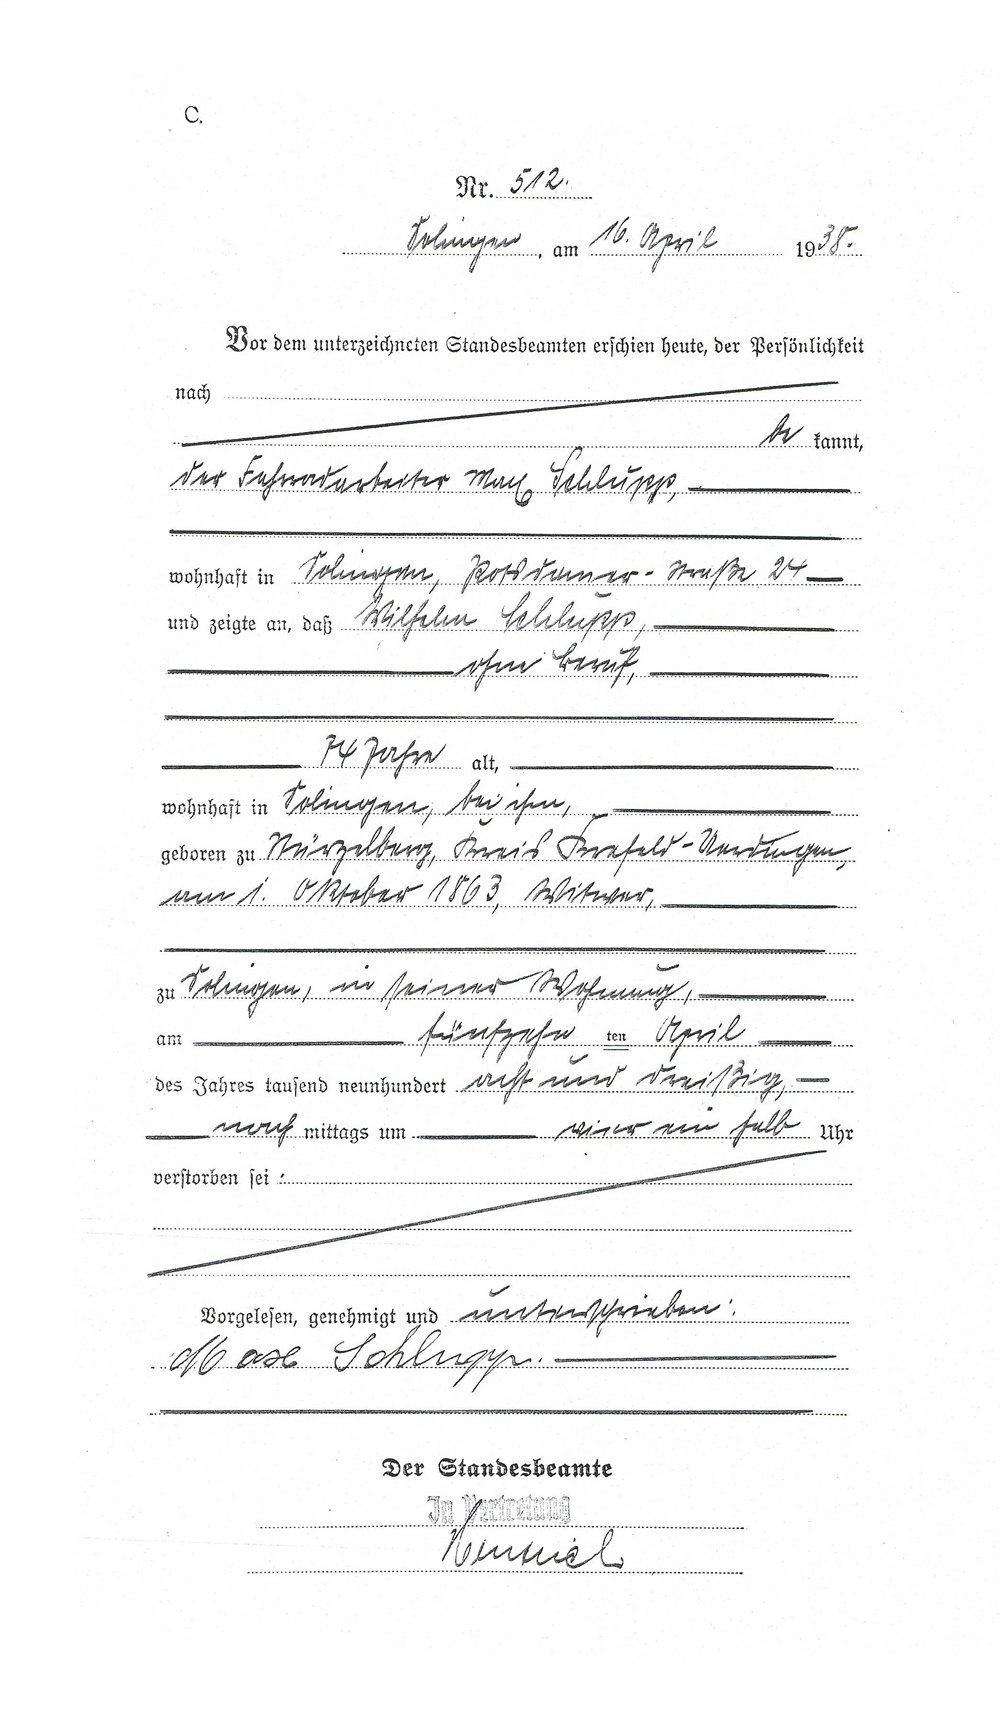 C.
Nr. 512.
Solingen, am 16. April 1938.
Vor dem unterzeichneten Standesbeamten erschien heute, der Persönlichkeit
nach
be kannt,
der Fahrradarbeiter Max Schlupp,
wohnhaft in Solingen, Potsdamer-Straße 24
und zeigte an, daß Wilhelm Schlupp,
ohne Beruf,
74 Jahre alt,
wohnhaft in Solingen, bei ihm,
geboren zu Kreis Krefeld-Uerdingen,
am 1. Oktober 1863, Witwer,
zu Solingen, in seiner Wohnung,
am fünfzehn ten April
des Jahres tausend neunhundert acht und dreißig,
nach mittags um vier ein halb Uhr
verstorben sei :
Vorgelesen, genehmigt und unterschrieben:
Max Schlupp.
Der Standesbeamte
In Vertretung